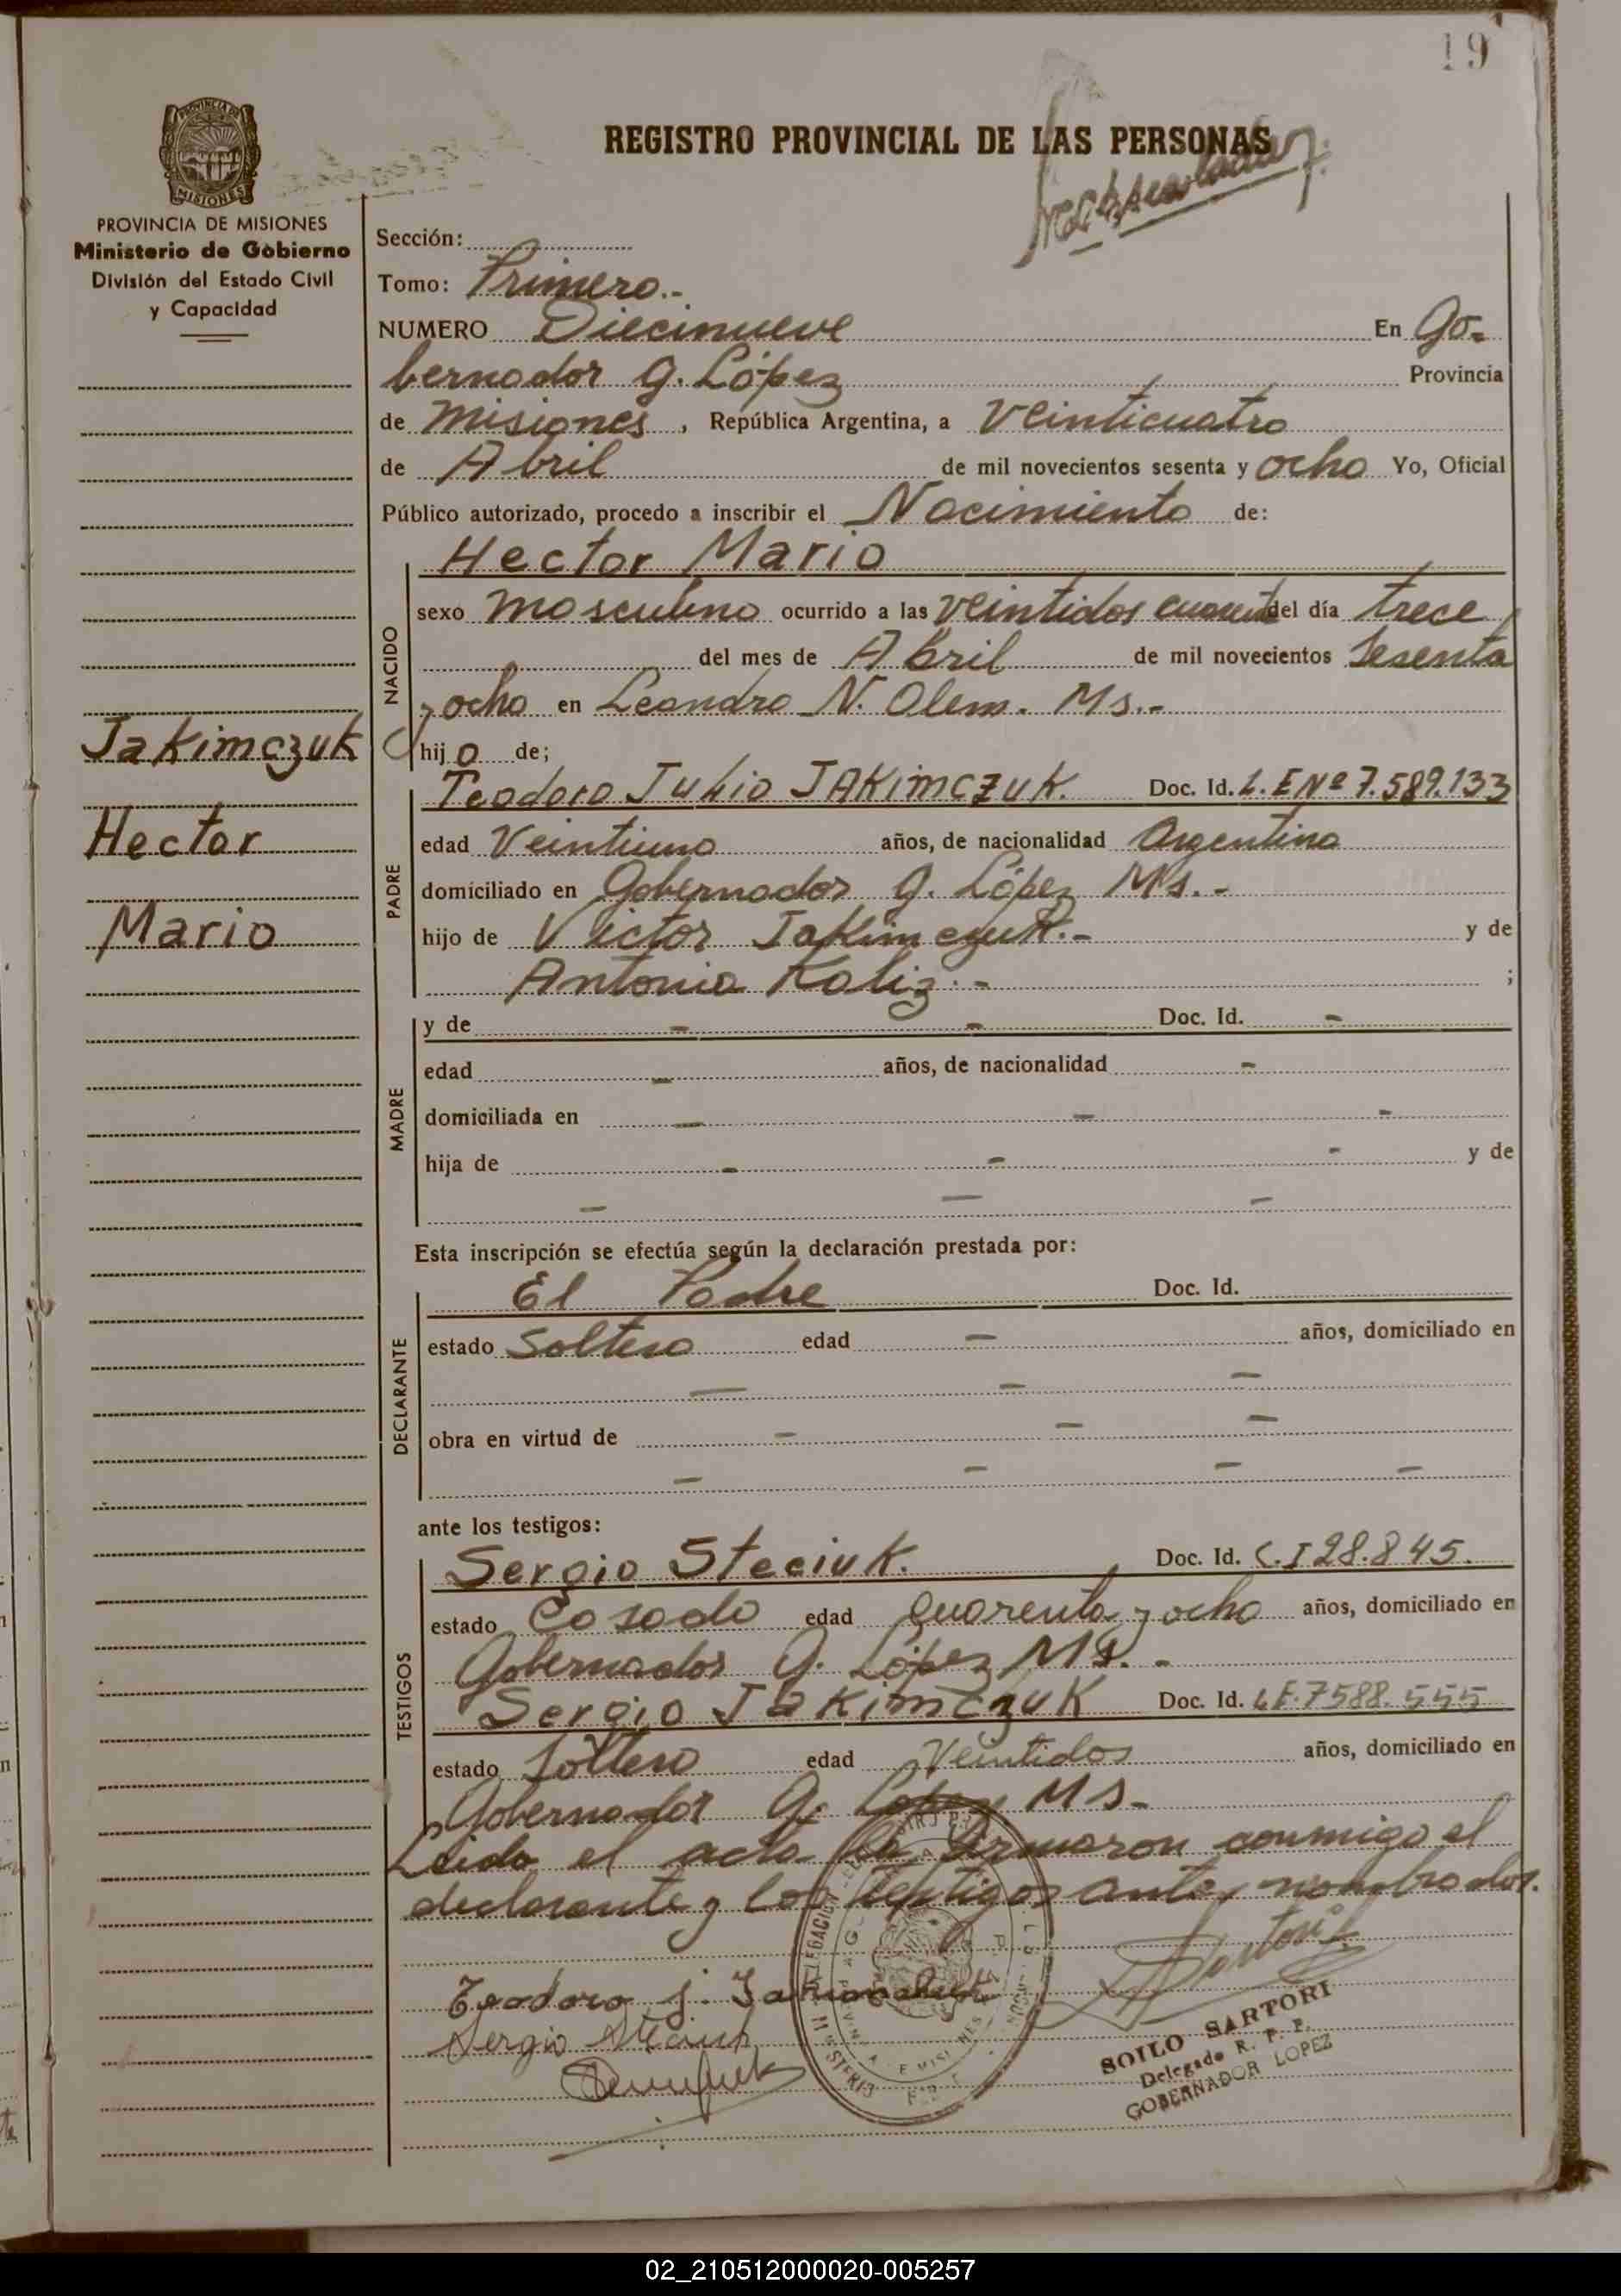 19
REGISTRO PROVINCIAL DE LAS PERSONAS
PROVINCIA DE MISIONES
MISIONES
PROVINCIA DE MISIONES
Ministerio de Gobierno
División del Estado Civil
y Capacidad
Jakimczuk
Hector
Mario
Sección:
Tomo: Primero.-
NUMERO Diecinueve En Go-
bernador G. López Provincia
de Misiones, República Argentina, a Veinticuatro
de Abril de mil novecientos sesenta y ocho Yo, Oficial
Público autorizado, procedo a inscribir el Nacimiento de:
Hector Mario
NACIDO
sexo Masculino ocurrido a las Veintidos cuarenta del día trece
del mes de Abril de mil novecientos Sesenta
y ocho en Leandro N. Alem. Ms.-
hijo de;
PADRE
Teodoro Julio JAKIMCZUK. Doc. Id. L.E Nº 7.589.133
edad Veintiuno años, de nacionalidad Argentina
domiciliado en Gobernador G. López Ms.-
hijo de Victor Jakimczuk.- y de
Antonia Kaliz.- ;
MADRE
y de - - Doc. Id. -
edad - años, de nacionalidad -
domiciliada en - - -
hija de - - - y de
- - -
Esta inscripción se efectúa según la declaración prestada por:
DECLARANTE
El Padre Doc. Id.
estado Soltero edad - años, domiciliado en
- - -
obra en virtud de - - -
- - - -
ante los testigos:
TESTIGOS
Sergio Steciuk. Doc. Id. C.I 28.845.
estado Casado edad quarenta y ocho años, domiciliado en
Gobernador G. López Ms.-
Sergio Jakimczuk Doc. Id. L.E.7588.555
estado Soltero edad Veintidos años, domiciliado en
Gobernador G. López Ms-
Leida el acta la firmaron conmigo el
declarante y los testigos antes nombrados.
Teodoro J. Jakimczuk
Sergio Steciuk
SOILO SARTORI
Delegado R. P. P.
GOBERNADOR LOPEZ
02_210512000020-005257